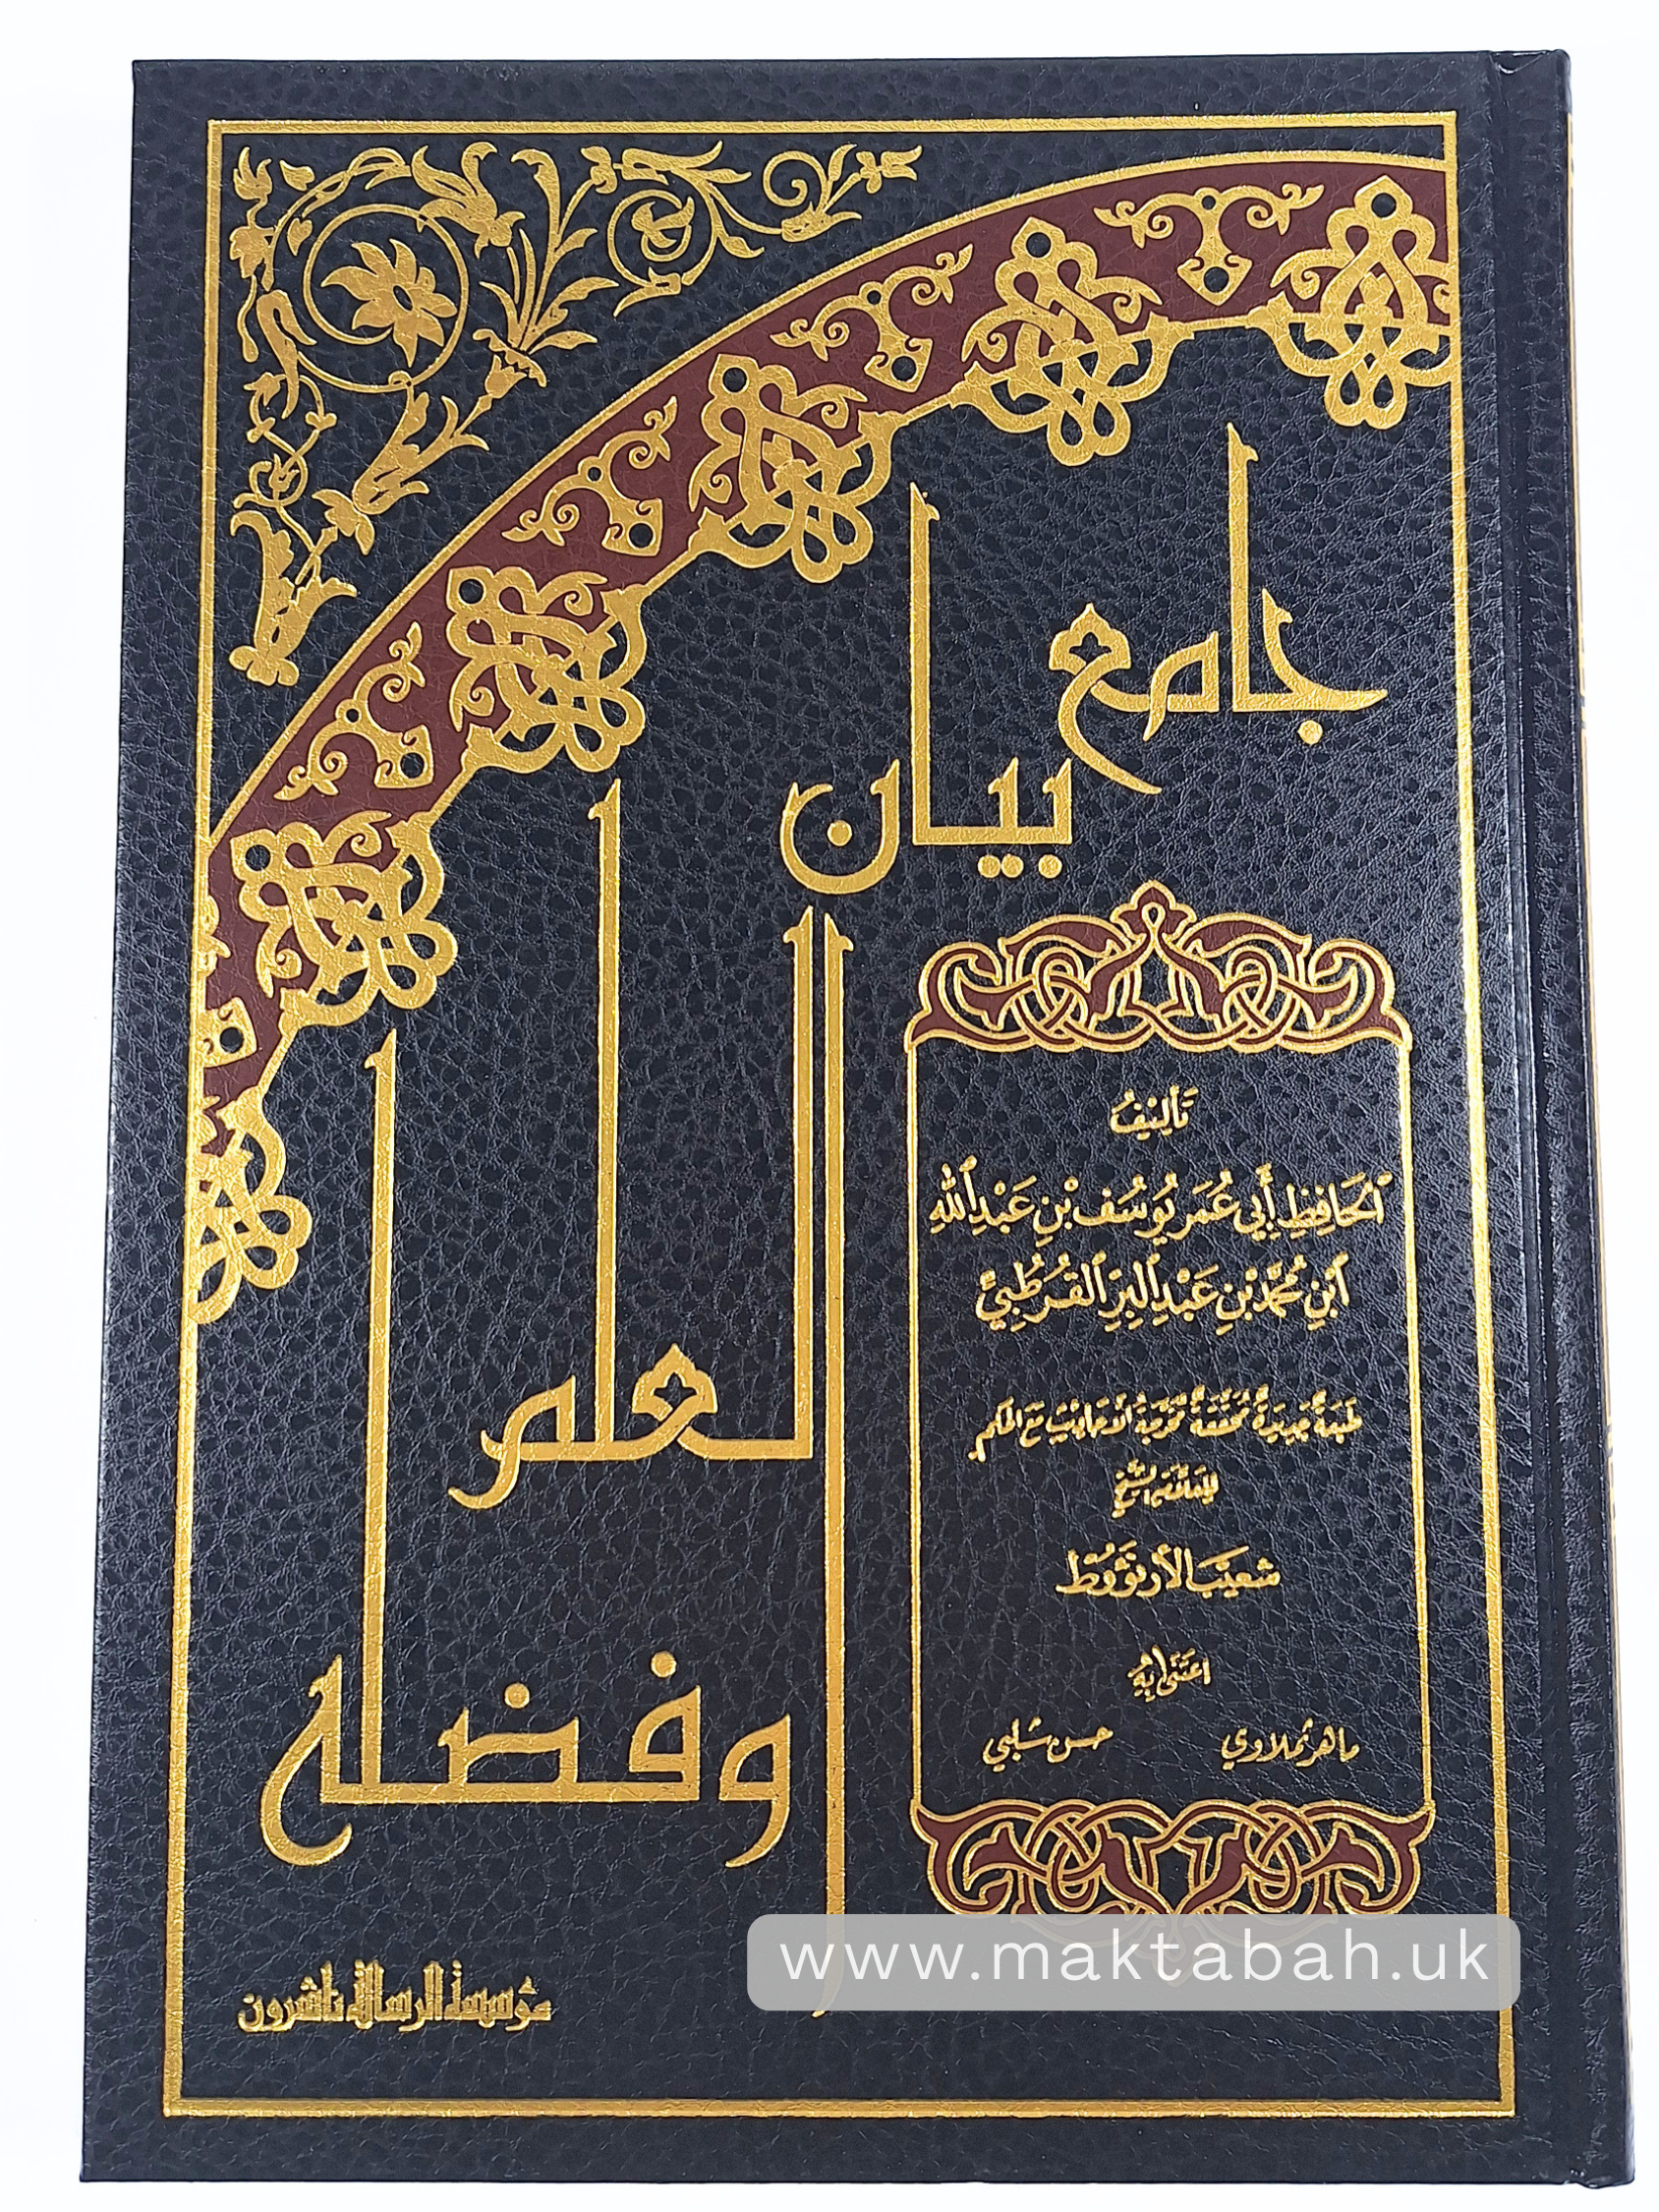 جامع
بيان
العلم
وفضله
تأليف
الحَافِظِ أَبي عُمَر يُوسُف بْنِ عَبْدِ اللهِ
ابْنِ مُحَمَّد بْنِ عَبْدِ البِرِّ القُرْطُبِيِّ
طَبعَةٌ جَدِيدَةٌ مُحَقَّقَةٌ مُخَرَّجَةُ الأحَادِيْثِ مَعَ الحُكم
للعَلَّامَةِ الشَّيخ
شعَيَب الأرنؤوط
اعتَنىٰ بِهِ
ماهر نملاوي حسن شلبي
مؤسسة الرسالة ناشرون
www.maktabah.uk